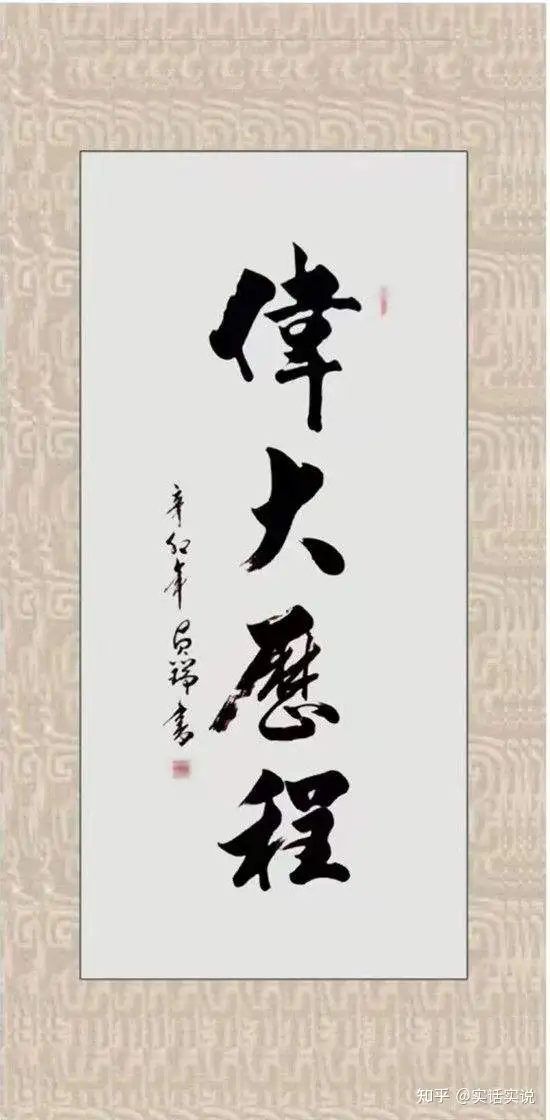 偉大歷程
辛丑年 瑞書
知乎 @实话实说